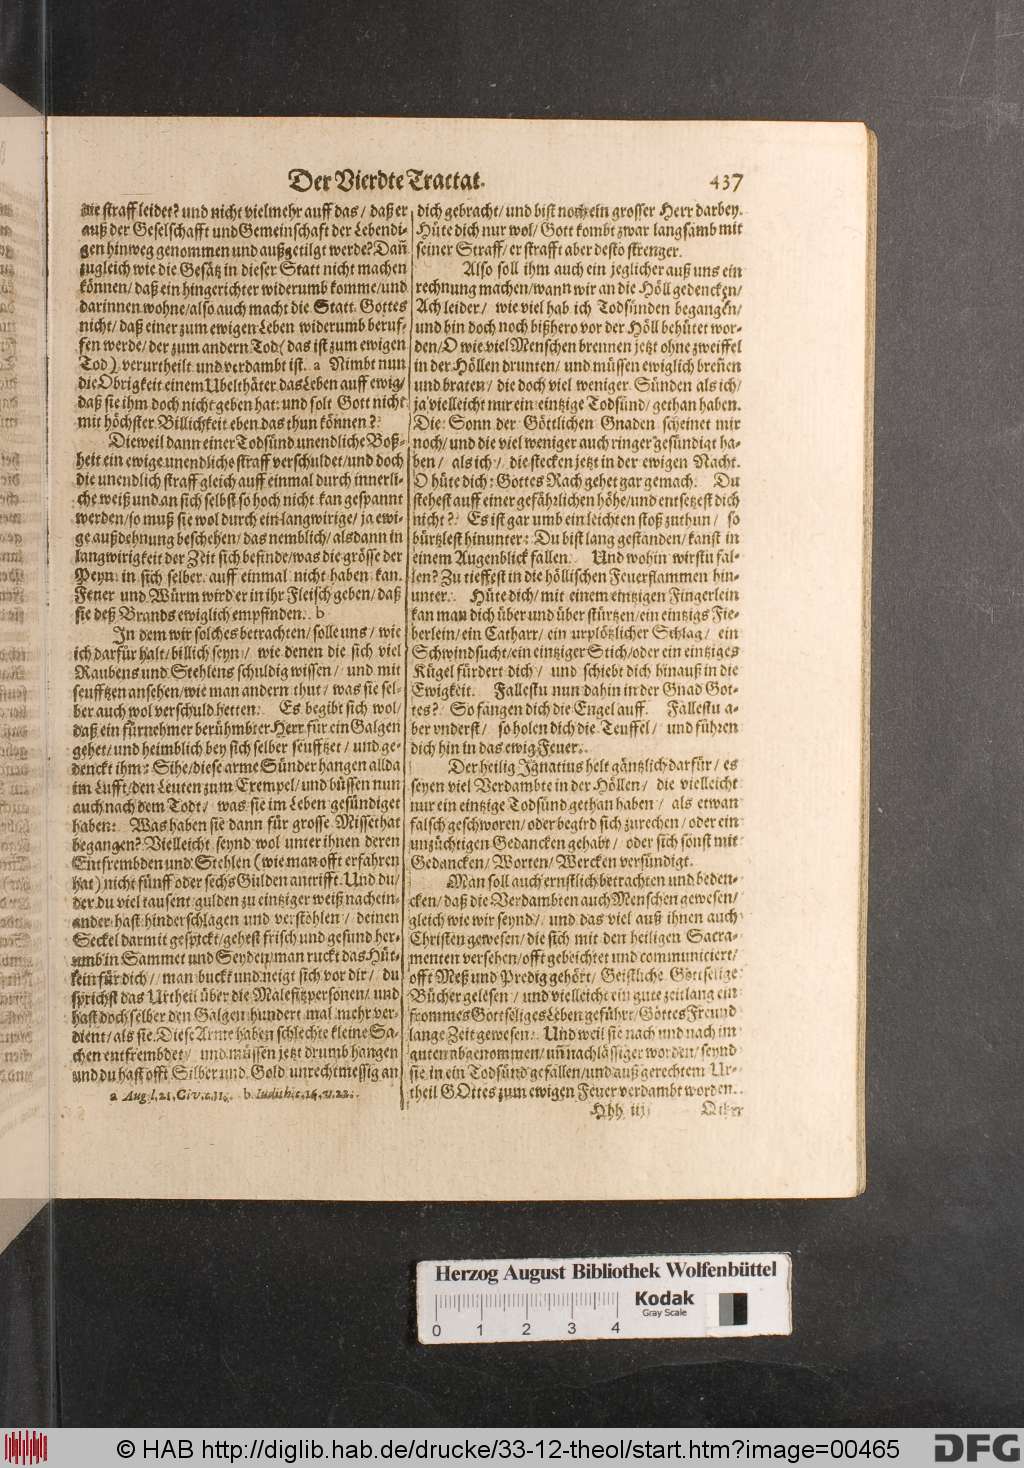 Der Vierdte Tractat. 437
die straff leidet? und nicht vielmehr auff das/ daß er
auß der Geselschafft und Gemeinschaft der Lebendi-
gen hinweg genommen und außgetilgt werde? Dañ
zugleich wie die Gesätz in dieser Statt nicht machen
können/ daß ein hingerichter widerumb komme/ und
darinnen wohne/ also auch macht die Statt Gottes
nicht/ daß einer zum ewigen Leben widerumb beruf-
fen werde/ der zum andern Tod (das ist zum ewigen
Tod) verurtheilt und verdambt ist. a Nimbt nun
die Obrigkeit einem Ubelthäter das Leben auff ewig/
daß sie ihm doch nicht geben hat: und solt Gott nicht
mit höchster Billichkeit eben das thun können?
Dieweil dann einer Todsünd unendliche Boß-
heit ein ewige unendliche straff verschuldet/ und doch
die unendlich straff gleich auff einmal durch innerli-
che weiß und an sich selbst so hoch nicht kan gespannt
werden/ so muß sie wol durch ein langwirige/ ja ewi-
ge außdehnung beschehen/ das nemblich/ als dann in
langwirigkeit der Zeit sich befinde/ was die grösse der
Peyn in sich selber auff einmal nicht haben kan.
Fewer und Würm wird er in ihr Fleisch geben/ daß
sie deß Brands ewiglich empfinden. b
In dem wir solches betrachten/ solle uns/ wie
ich darfür halt/ billich seyn/ wie denen die sich viel
Raubens und Stehlens schuldig wissen/ und mit
seufftzen ansehen/ wie man andern thut/ was sie sel-
ber auch wol verschuld hetten. Es begibt sich wol/
daß ein fürnehmer berühmbter Herr für ein Galgen
gehet/ und heimblich bey sich selber seufftzet/ und ge-
denckt ihm: Sihe/ diese arme Sünder hangen allda
im Lufft/ den Leuten zum Exempel/ und büssen nun
auch nach dem Todt/ was sie im Leben gesündiget
haben: Was haben sie dann für grosse Missethat
begangen? Vielleicht seynd wol unter ihnen deren
Entfrembden und Stehlen (wie man offt erfahren
hat) nicht fünff oder sechs Gulden antrifft. Und du/
der du viel tausent gulden zu eintziger weiß nachein-
ander hast hinderschlagen und verstohlen/ deinen
Seckel darmit gespickt/ gehest frisch und gesund her-
umb in Sammet und Seyden/ man ruckt das Hüt-
lein für dich/ man buckt und neigt sich vor dir/ du
sprichst das Urtheil über die Malefitzpersonen/ und
hast doch selber den Galgen hundert mal mehr ver-
dient/ als sie. Diese Arme haben schlechte kleine Sa-
chen entfrembdet/ und müssen jetzt drumb hangen
und du hast offt Silber und Gold unrechtmessig an
a Aug. l. 21. Civ. c. 11. b Iudith. c. 16. v. 22.
dich gebracht/ und bist noch ein grosser Herr darbey.
Hüte dich nur wol/ Gott kombt zwar langsamb mit
seiner Straff/ er strafft aber desto strenger.
Also soll ihm auch ein jeglicher auß uns ein
rechnung machen/ wann wir an die Höll gedencken/
Ach leider/ wie viel hab ich Todsünden begangen/
und bin doch noch bißhero vor der Höll behütet wor-
den/ O wie viel Menschen brennen jetzt ohne zweiffel
in der Höllen drunten/ und müssen ewiglich breñen
und braten/ die doch viel weniger Sünden als ich/
ja vielleicht nur ein eintzige Todsünd/ gethan haben.
Die Sonn der Göttlichen Gnaden scheinet mir
noch/ und die viel weniger auch ringer gesündigt ha-
ben/ als ich/ die stecken jetzt in der ewigen Nacht.
O hüte dich: Gottes Rach gehet gar gemach. Du
stehest auff einer gefährlichen höhe/ und entsetzest dich
nicht? Es ist gar umb ein leichten stoß zuthun/ so
bürtzlest hinunter: Du bist lang gestanden/ kanst in
einem Augenblick fallen. Und wohin wirstu fal-
len? Zu tieffest in die höllischen Feuerflammen hin-
unter. Hüte dich/ mit einem eintzigen Fingerlein
kan man dich über und über stürtzen/ ein eintzigs Fie-
berlein/ ein Catharr/ ein urplötzlicher Schlag/ ein
Schwindsucht/ ein eintziger Stich/ oder ein eintziges
Kügel fürdert dich/ und schiebt dich hinauß in die
Ewigkeit. Fallestu nun dahin in der Gnad Got-
tes? So fangen dich die Engel auff. Fallestu a-
ber vnderst/ so holen dich die Teuffel/ und führen
dich hin in das ewig Feuer.
Der heilig Ignatius helt gäntzlich darfür/ es
seyen viel Verdambte in der Höllen/ die vielleicht
nur ein eintzige Todsünd gethan haben/ als etwan
falsch geschworen/ oder begird sich zurechen/ oder ein
unzüchtigen Gedancken gehabt/ oder sich sonst mit
Gedancken/ Worten/ Wercken versündigt.
Man soll auch ernstlich betrachten und beden-
cken/ daß die Verdambten auch Menschen gewesen/
gleich wie wir seynd/ und das viel auß ihnen auch
Christen gewesen/ die sich mit den heiligen Sacra-
menten versehen/ offt gebeichtet und communiciert/
offt Meß und Predig gehört/ Geistliche Gottselige
Bücher gelesen/ und vielleicht ein gute zeitlang ein
frommes Gottseliges Leben geführt/ Gottes Freund
lange Zeit gewesen. Und weil sie nach und nach im
guten abgenommen/ uñ nachlässiger worden/ seynd
sie in ein Todsünd gefallen/ und auß gerechtem Ur-
theil GOttes zum ewigen Feuer verdambt worden.
Hhh iij
Herzog August Bibliothek Wolfenbüttel
Kodak
Gray Scale
0 1 2 3 4
© HAB http://diglib.hab.de/drucke/33-12-theol/start.htm?image=00465
DFG